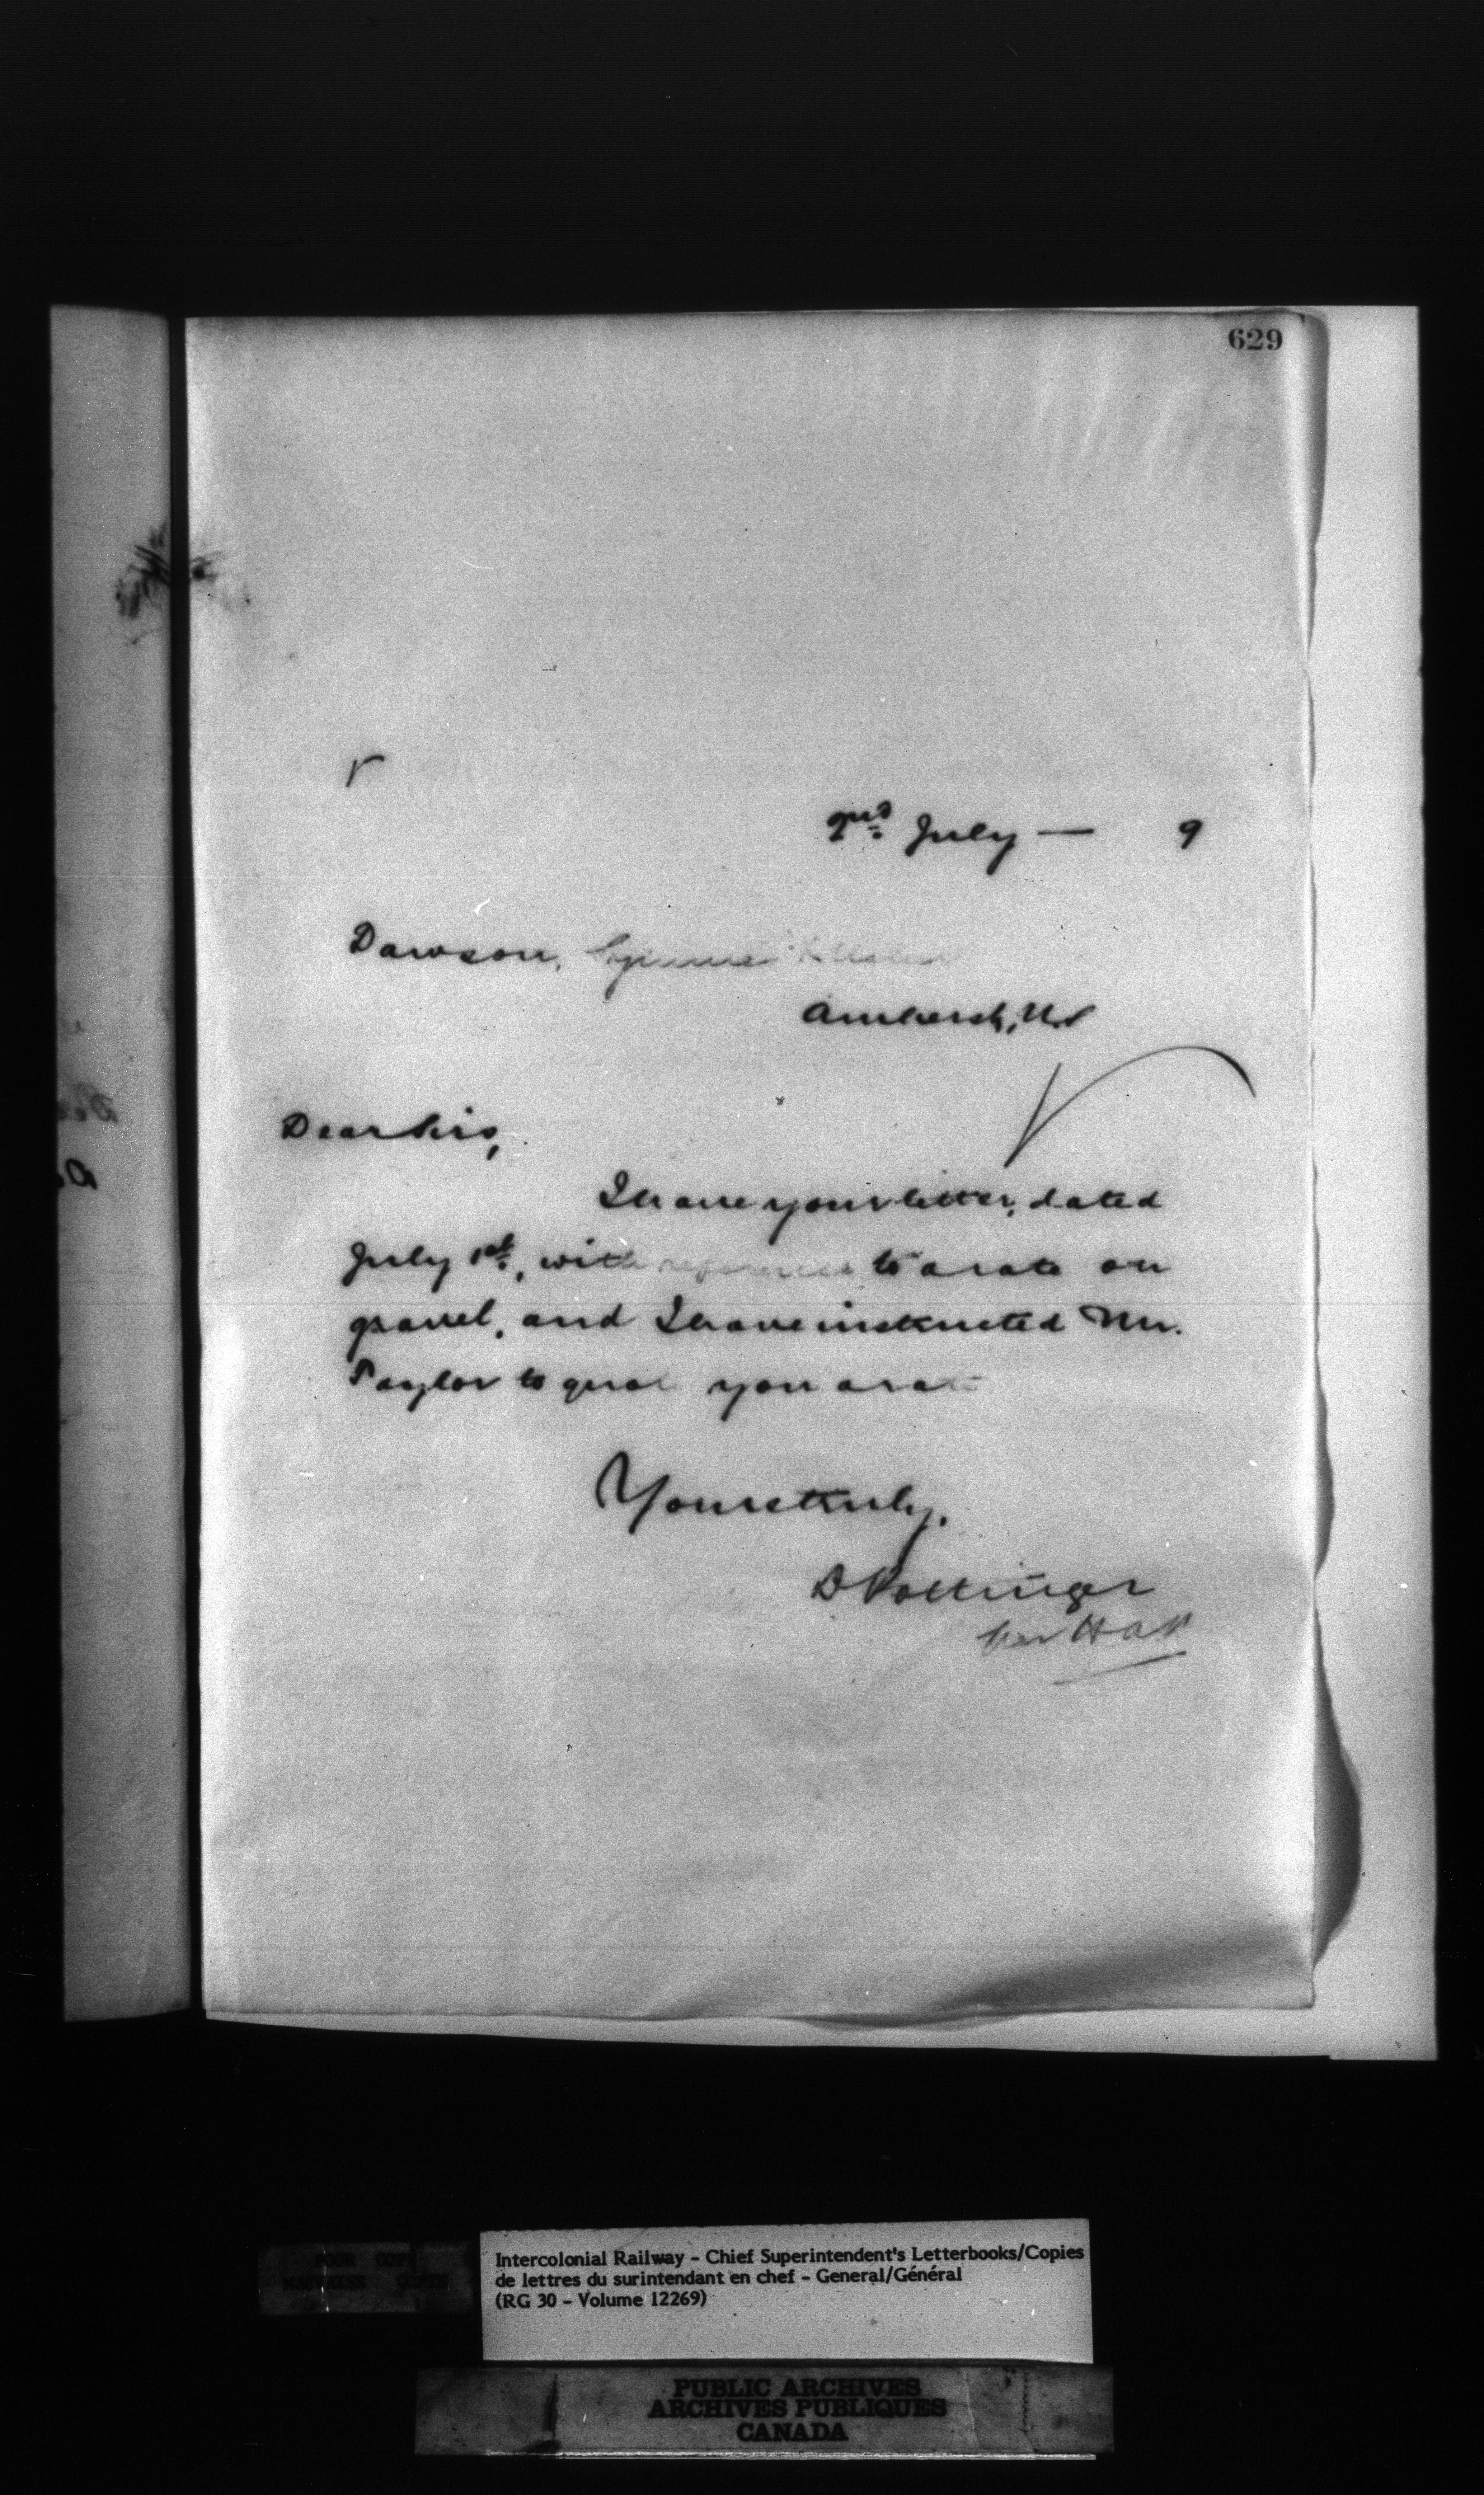 629
2nd July — 9
Dawson,
Amherst, N.S.
Dear Sirs,
I have your letter, dated
July 1st, with reference to a rate on
gravel, and I have instructed Mr.
Taylor to quote you a rate
Yours truly,
D Pottinger
per
POOR COPY
MAUVAISE COPIE
Intercolonial Railway - Chief Superintendent's Letterbooks/Copies
de lettres du surintendant en chef - General/Général
(RG 30 - Volume 12269)
PUBLIC ARCHIVES
ARCHIVES PUBLIQUES
CANADA